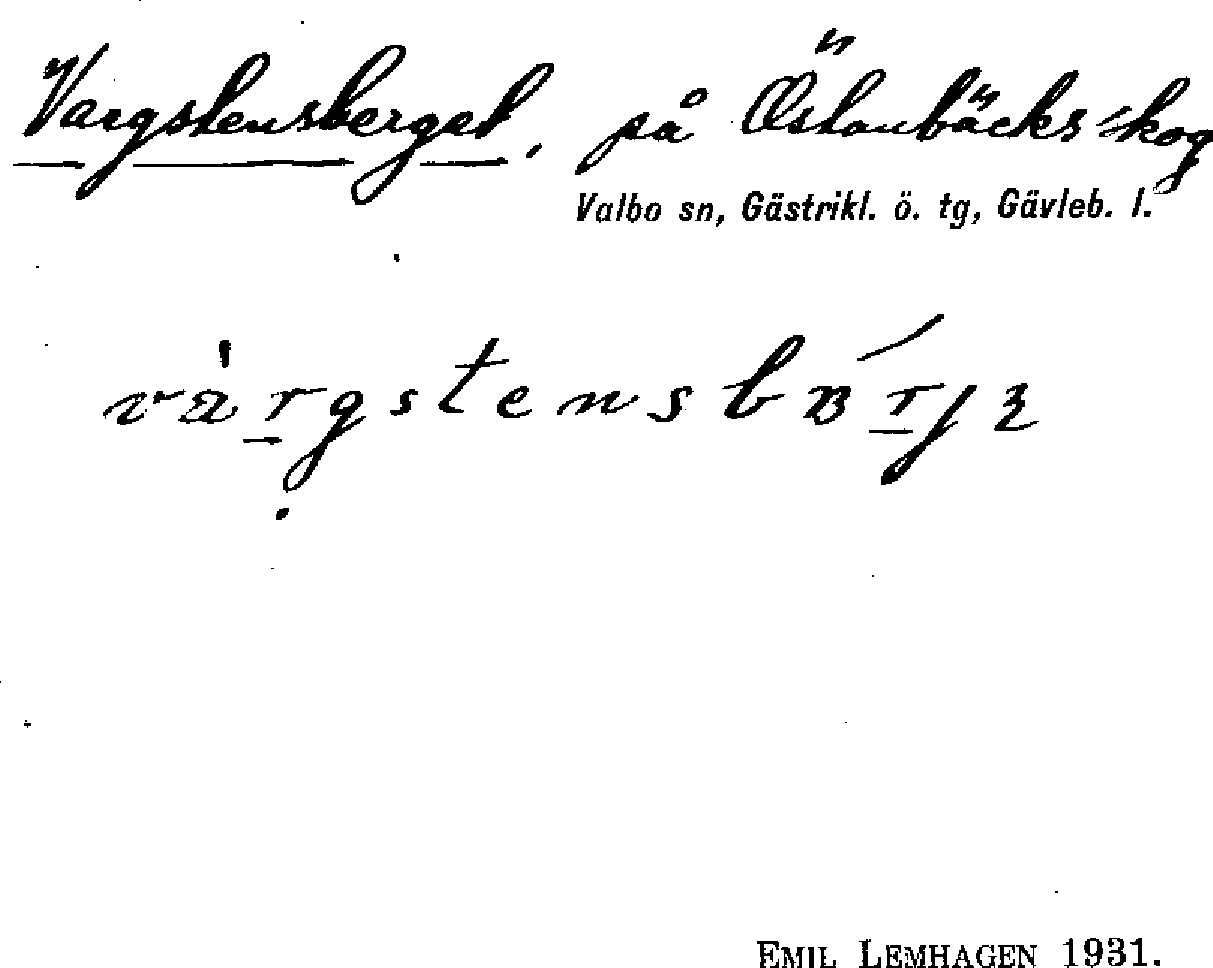 Vargstensberget, på Östanbäcks skog
Valbo sn, Gästrikl. ö. tg, Gävleb. l.
vàrgstensbärjɜ
EMIL LEMHAGEN 1931.